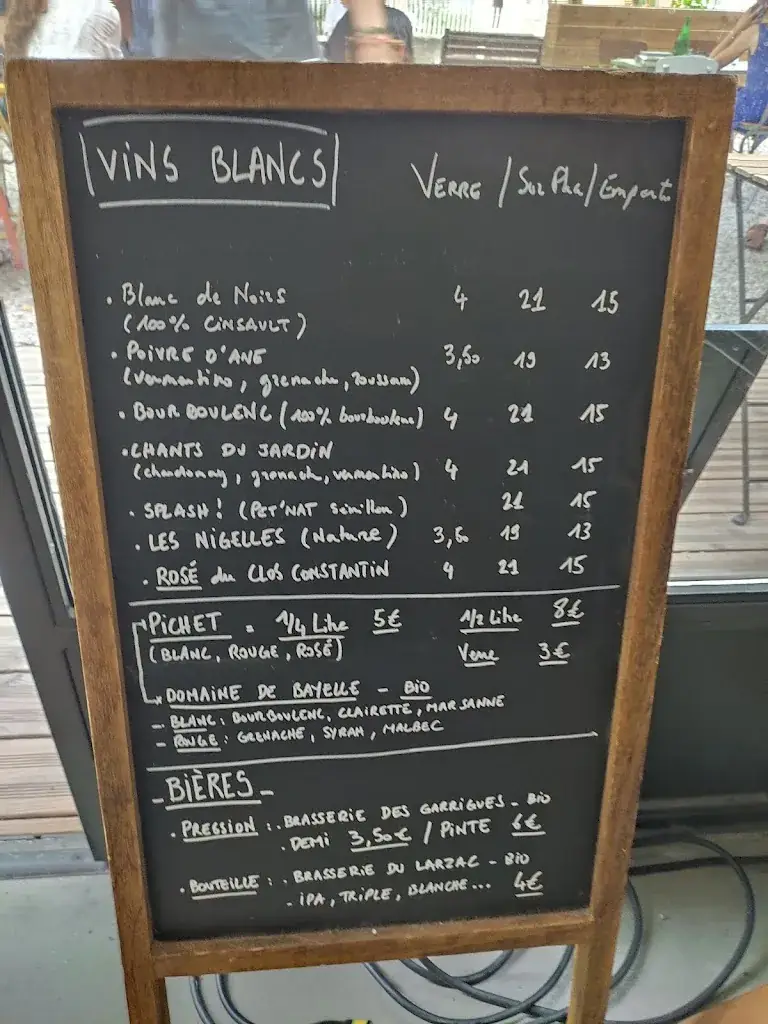 VINS BLANCS VERRE / Sur Place / Emporte
• Blanc de Noirs 4 21 15
(100% CINSAULT)
• POIVRE D'ANE 3,50 19 13
(vermentino, grenache, roussane)
• BOURBOULENC (100% bourboulenc) 4 21 15
• CHANTS DU JARDIN
(chardonnay, grenach, vermentino) 4 21 15
• SPLASH! (PET'NAT Sémillon) 21 15
• LES NIGELLES (Nature) 3,50 19 13
• ROSÉ du CLOS CONSTANTIN 4 21 15
PICHET = 1/4 Litre 5€ 1/2 Litre 8€
(BLANC, ROUGE, ROSÉ) Verre 3€
DOMAINE DE BAYELLE - BIO
- BLANC: BOURBOULENC, CLAIRETTE, MARSANNE
- ROUGE: GRENACHE, SYRAH, MALBEC
- BIÈRES -
• PRESSION: • BRASSERIE DES GARRIGUES - BIO
• DEMI 3,50€ / PINTE 6€
• BOUTEILLE: • BRASSERIE DU LARZAC - BIO
- IPA, TRIPLE, BLANCHE... 4€